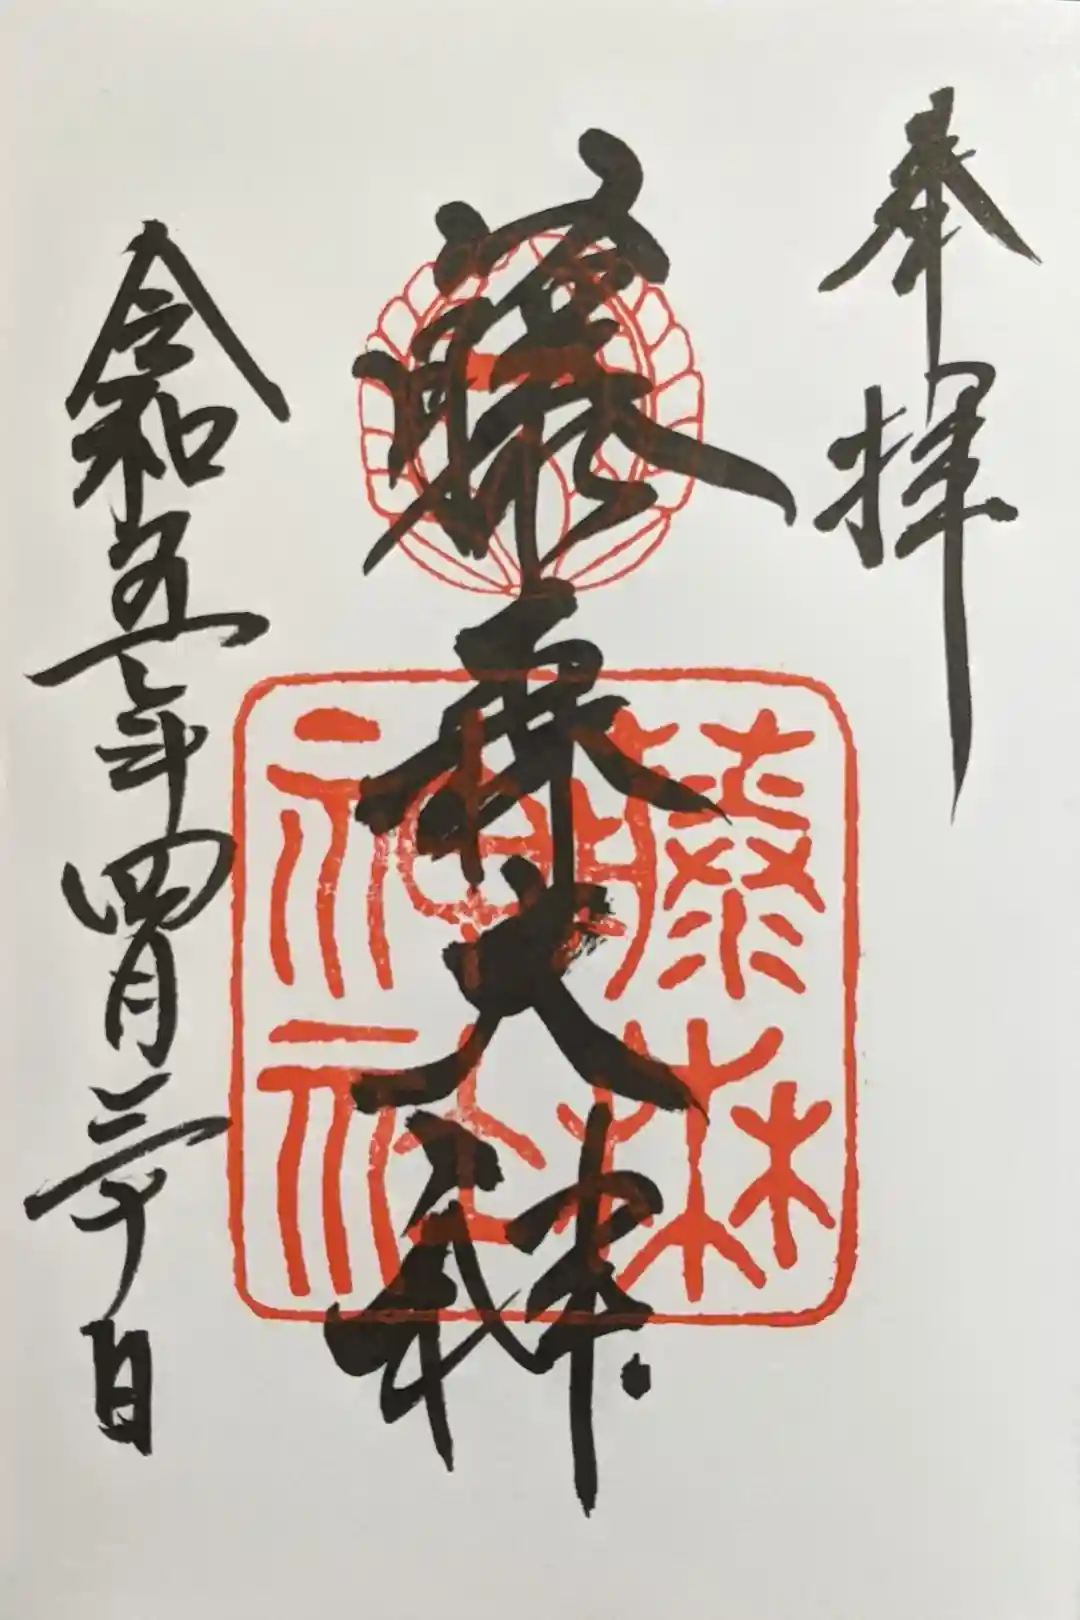 奉拝
藤森大神
藤森
神社
令和五年四月三十日